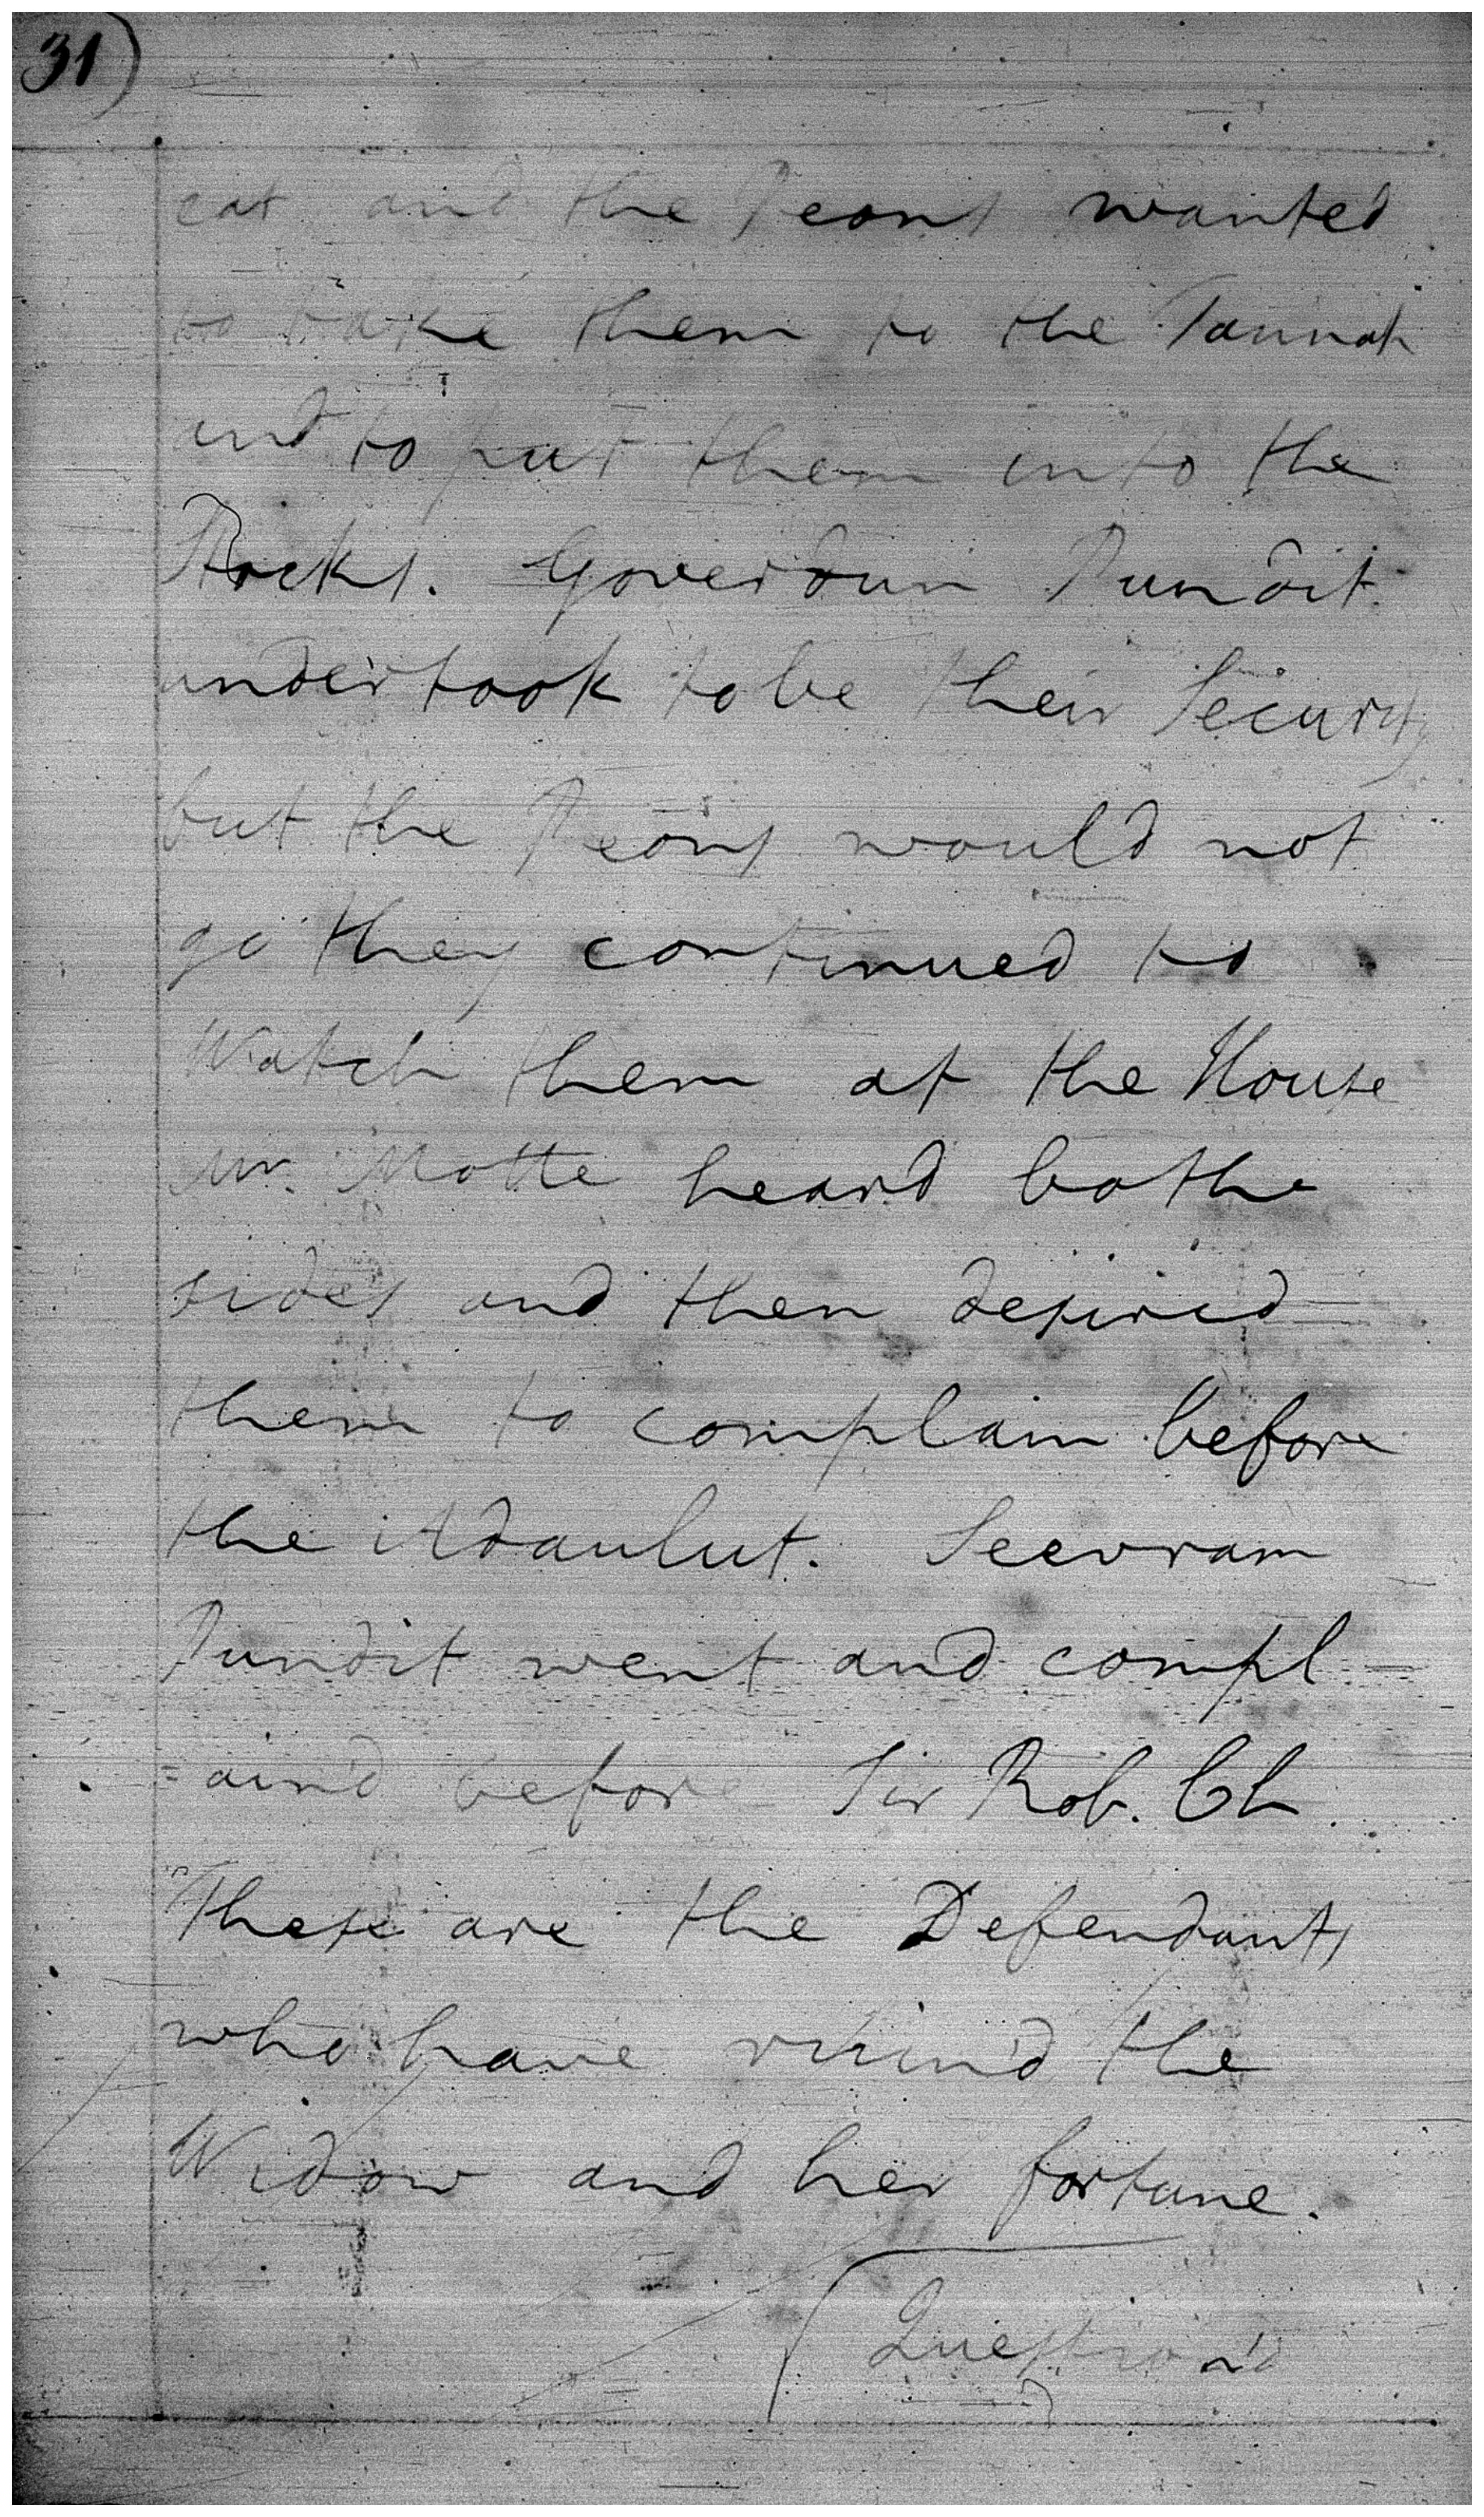 31)
eat and the Peons wanted
to take them to the Tannah
and to put them into the
Stocks. Goverdun Pundit
undertook to be their Security
but the Peons would not
go they continued to
Watch them at the House
Mr. Motte heard bothe
sides and then desired
them to complain before
the Adaulut. Seevram
Pundit went and compl-
=ain'd before Sir Rob. Ch
These are the Defendants
who have ruin'd the
Widow and her fortune.
Question'd